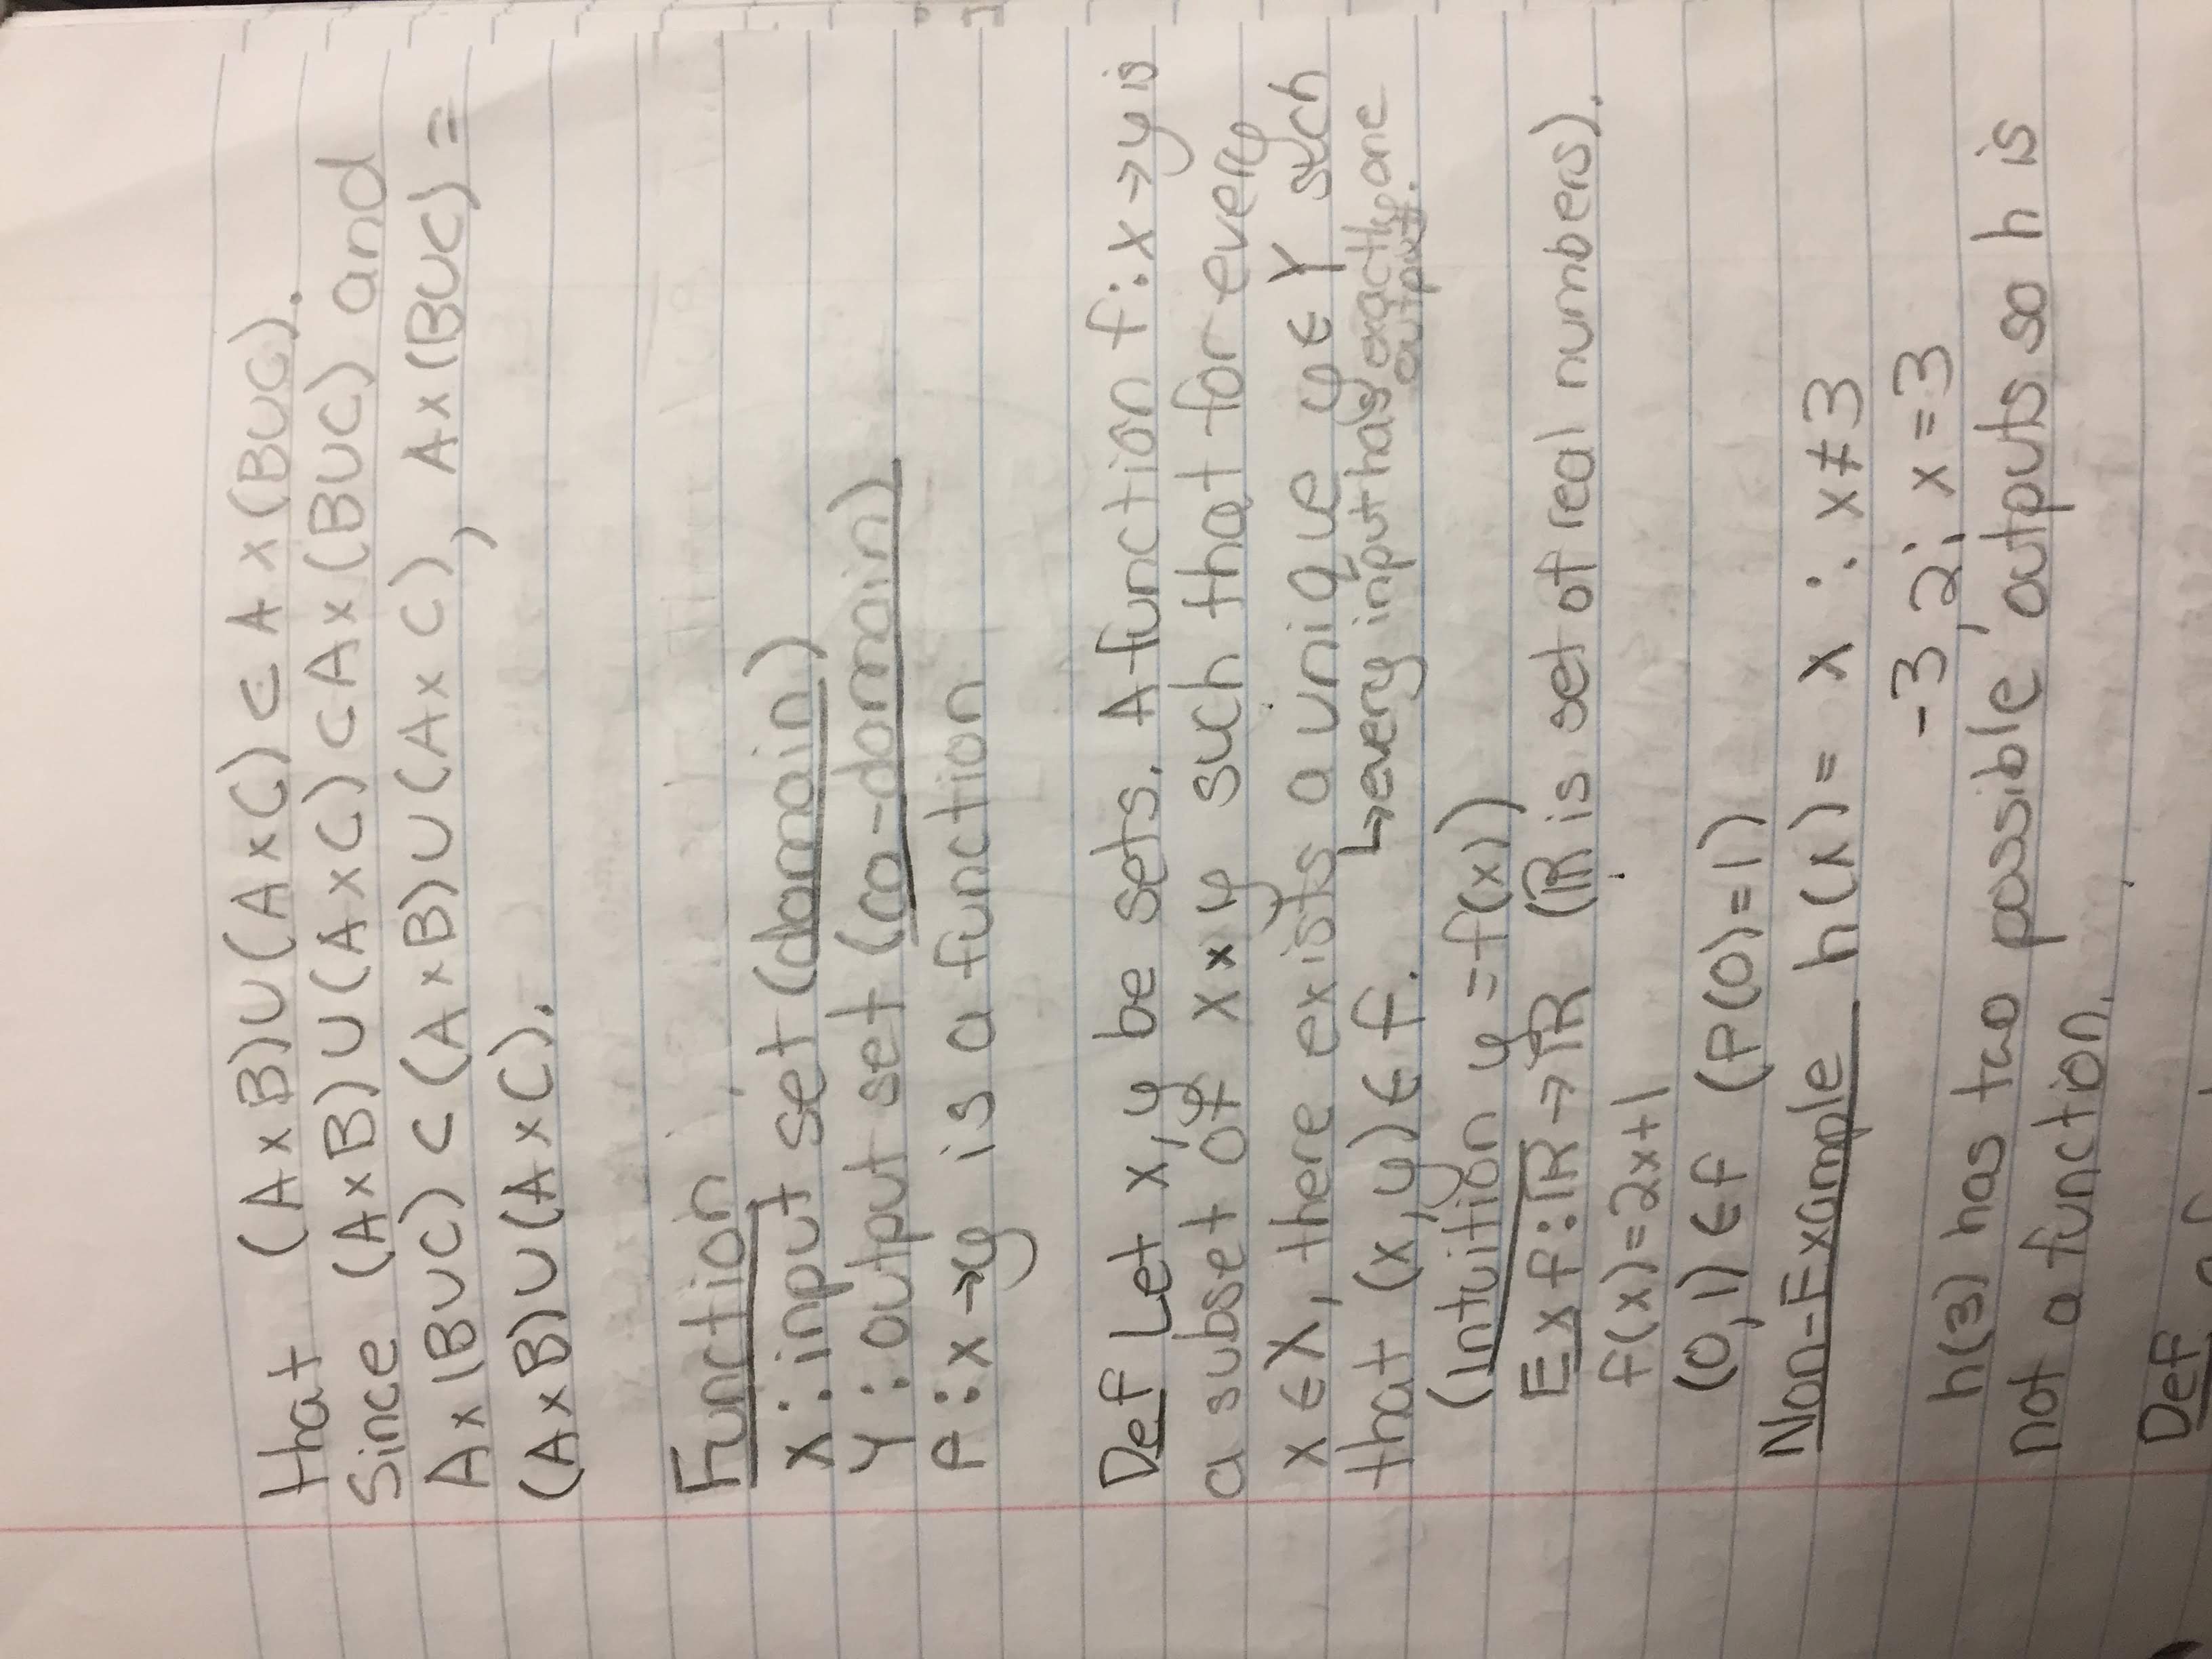 that (A×B)∪(A×C) ⊂ A×(B∪C).
Since (A×B)∪(A×C) ⊂ A×(B∪C) and
A×(B∪C) ⊂ (A×B)∪(A×C), A×(B∪C) =
(A×B)∪(A×C).
Function
X: input set (domain)
Y: output set (co-domain)
f: x→y is a function
Def Let x, y be sets. A function f: x→y is
a subset of x×y such that for every
x∈X, there exists a unique y∈Y such
that (x,y)∈f. ↳every input has exactly one
output.
(Intuition y=f(x))
Ex f:ℝ→ℝ (ℝ is set of real numbers).
f(x)=2x+1
(0,1)∈f (f(0)=1)
Non-Example h(x)= x : x≠3
-3,2; x=3
h(3) has two possible outputs so h is
not a function.
Def